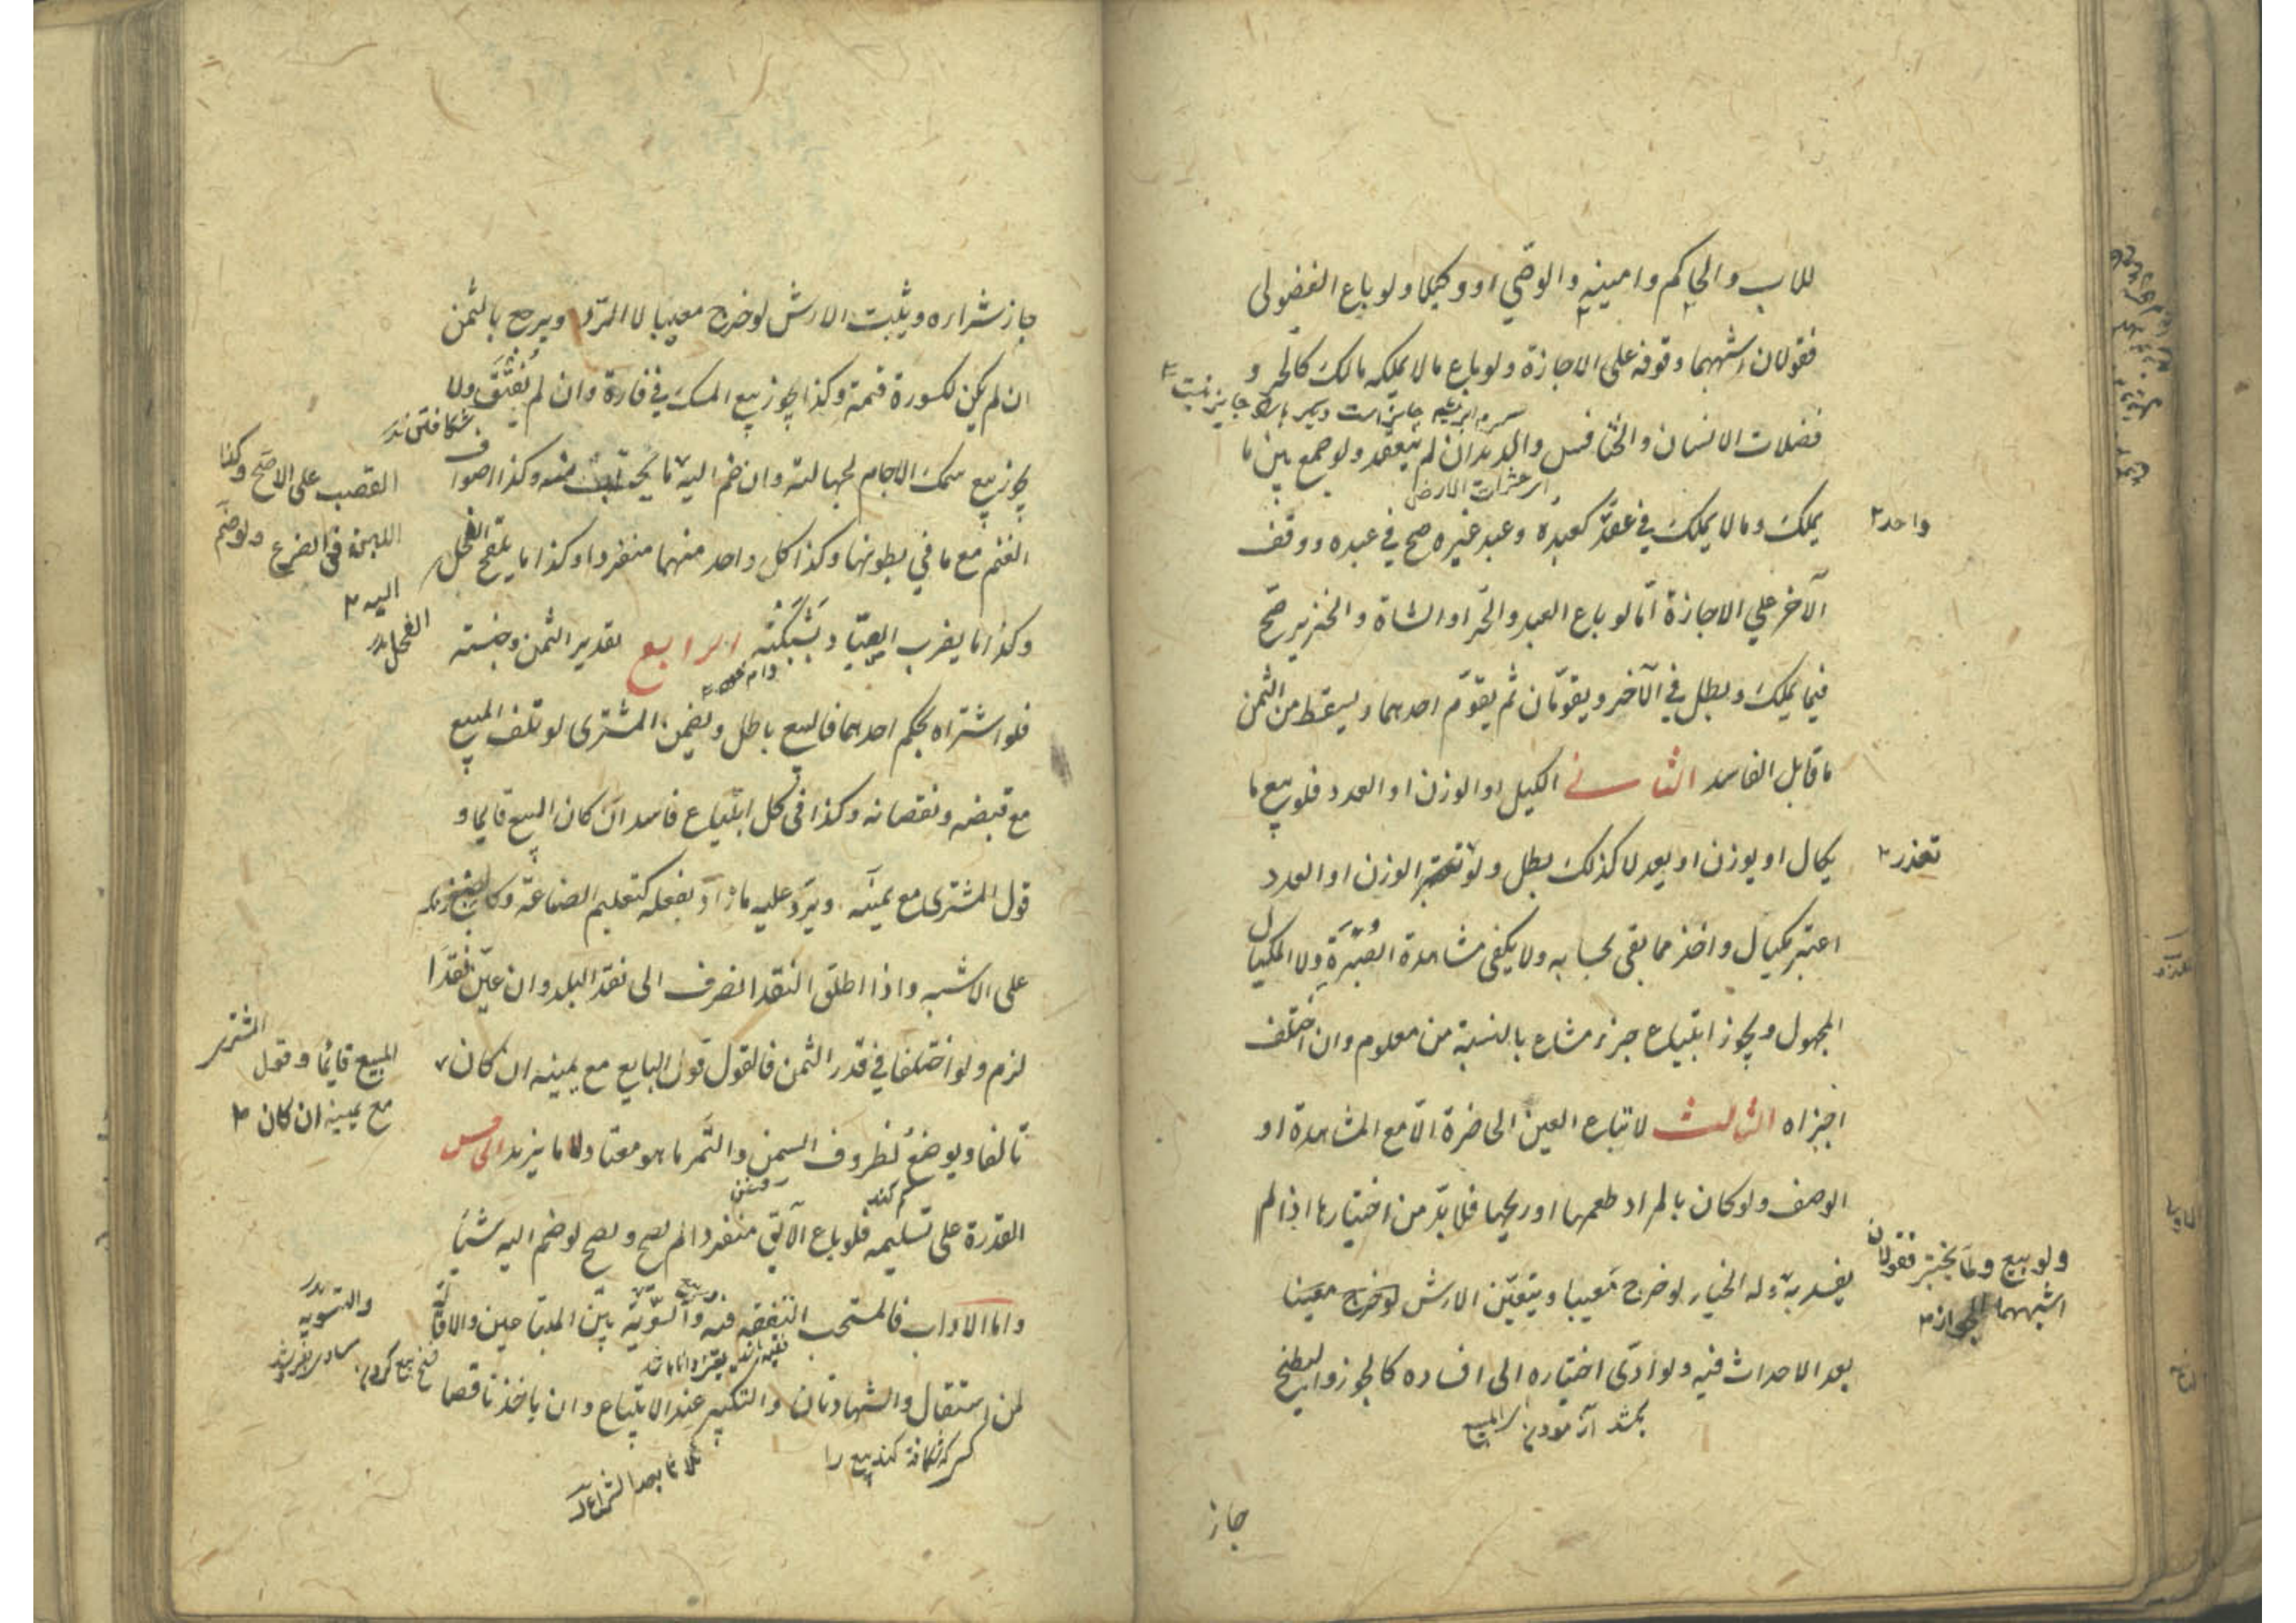 للاب والحاكم وامينه والوصي او وكيلا ولو باع الفضولى
فقولان اشبههما وقوفه على الاجازة ولو باع ما لا يملكه مالك كالحر و
فضلات الانسان والخنافس والديدان لم ينعقد ولو جمع بين ما
حشرات الارض
يملك وما لا يملك في عقد كعبده وعبد غيره صح في عبده ووقف
واحد
الآخر علي الاجازة اما لو باع العبد والحر او الشاة والخنزير صح
فيما يملك وبطل في الآخر ويقومان ثم يقوم احدهما ويسقط من الثمن
ما قابل الفاسد الثانى الكيل او الوزن او العدد فلو بيع ما
يكال او يوزن او يعد لا كذلك بطل ولو تعسر الوزن او العدد
تعذر
اعتبر مكيال واخذ مما بقى بحسابه ولا يكفى مشاهدة الصبرة ولا المكيال
المجهول ويجوز ابتياع جزء مشاع بالنسبة من معلوم وان اختلف
اجزاه الثالث لا تباع العين الحاضرة الا مع المشاهدة او
الوصف ولو كان بالمراد طعمها او ريحها فلا بد من اختبارها اذا لم
يفسد به وله الخيار لو خرج معيبا ويتعين الارش لو خرج معيبا
ولو بيع ولما يختبر فقولان
اشبههما الجواز
بعد الاحداث فيه ولو ادى اختباره الى افساده كالجوز والبطيخ
جاز
جاز شراؤه ويثبت الارش لو خرج معيبا لا الرد ويرجع بالثمن
ان لم يكن لكسورة قيمة وكذا يجوز بيع المسك في فارة وان لم يفتق ولا
يجوز بيع سمك الاجام لجهالته وان ضم اليه ما يحتاب منه وكذا اصواف
القصب على الاصح وكذا
اللبن فى الضرع ولو ضم
اليه
الغنم مع ما في بطونها وكذا كل واحد منهما منفردا وكذا ما يلقح الفحل
الفحل
وكذا ما يضرب الصياد بشبكته الرابع تقدير الثمن وجنسه
فلو اشتراه بحكم احدهما فالبيع باطل ويضمن المشترى لو تلف المبيع
مع قبضه ونقصانه وكذا فى كل ابتياع فاسد ان كان المبيع قايما و
قول المشترى مع يمينه ويرد عليه ما زاد بفعله كتعليم الصناعة وكالصبغ
على الاشبه واذا اطلق النقد انصرف الى نقد البلد وان عين نقدا
لزم ولو اختلفا في قدر الثمن فالقول قول البايع مع يمينه ان كان
المبيع قايما وقول المشترى
مع يمينه ان كان
تالفا ويوضع لظروف السمن والتمر ما هو معتاد لا ما يزيد الخامس
القدرة على تسليمه فلو باع الآبق منفردا لم يصح ويصح لو ضم اليه شيئا
واما الاداب فالمستحب التفقه فيه والسوية بين المبتاعين والاقالة
والتسويه
لمن استقال والشهادتان والتكبير عند الابتياع وان ياخذ ناقصا